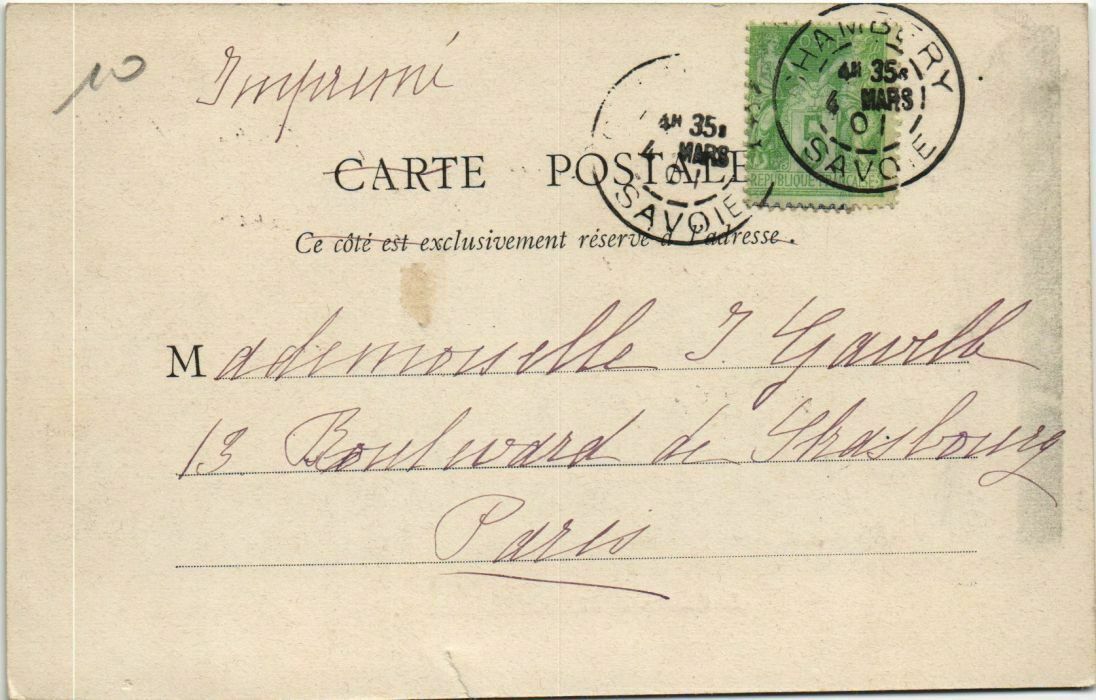 10
Imprimé
CARTE POSTALE
Ce côté est exclusivement réservé à l'adresse.
CHAMBERY
4H 35s
4 MARS
01
SAVOIE
4H 35s
4 MARS
01
SAVOIE
5
REPUBLIQUE FRANCAISE
Mademoiselle J Gavelle
13 Boulward de Strasbourg
Paris